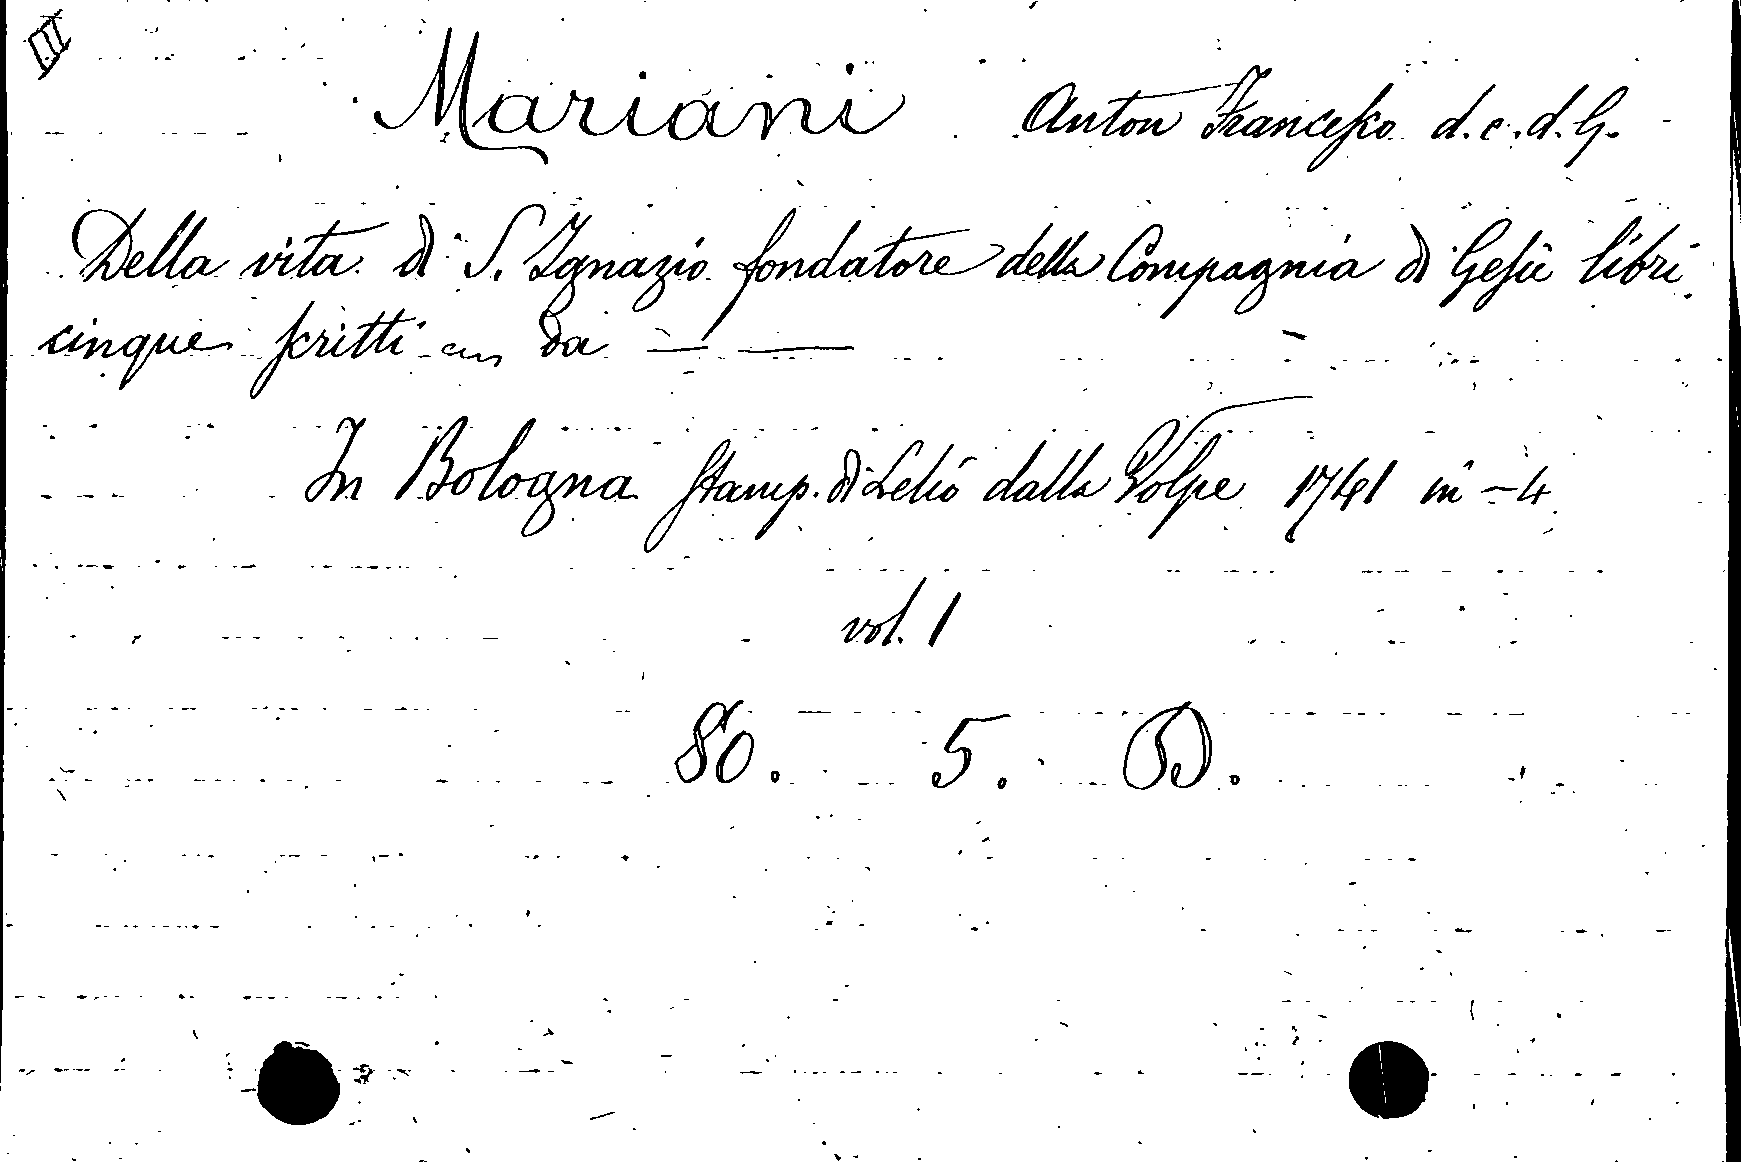 Mariani Anton Francesko d.c.d.G.
Della vita di S. Ignazio fondatore della Compagnia di Gesù libri
cinque scritti da — —
In Bologna Stamp. di Lelio dalla Volpe 1741 in-4
vol. 1
80. 5. D.